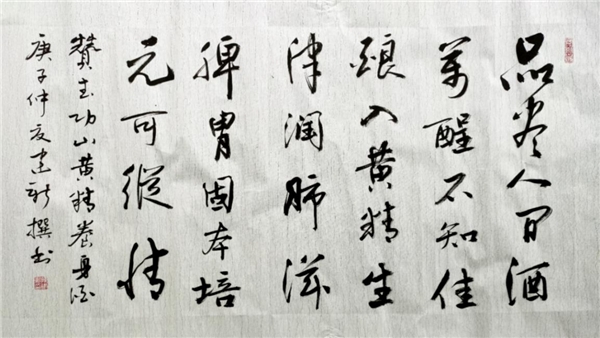 品尽人间酒
萬醒不知佳
酿入黄精生
津润肺滋
脾胃固本培
元可縱情
赞玉功山黄精养身酒
庚子仲夏建新撰书